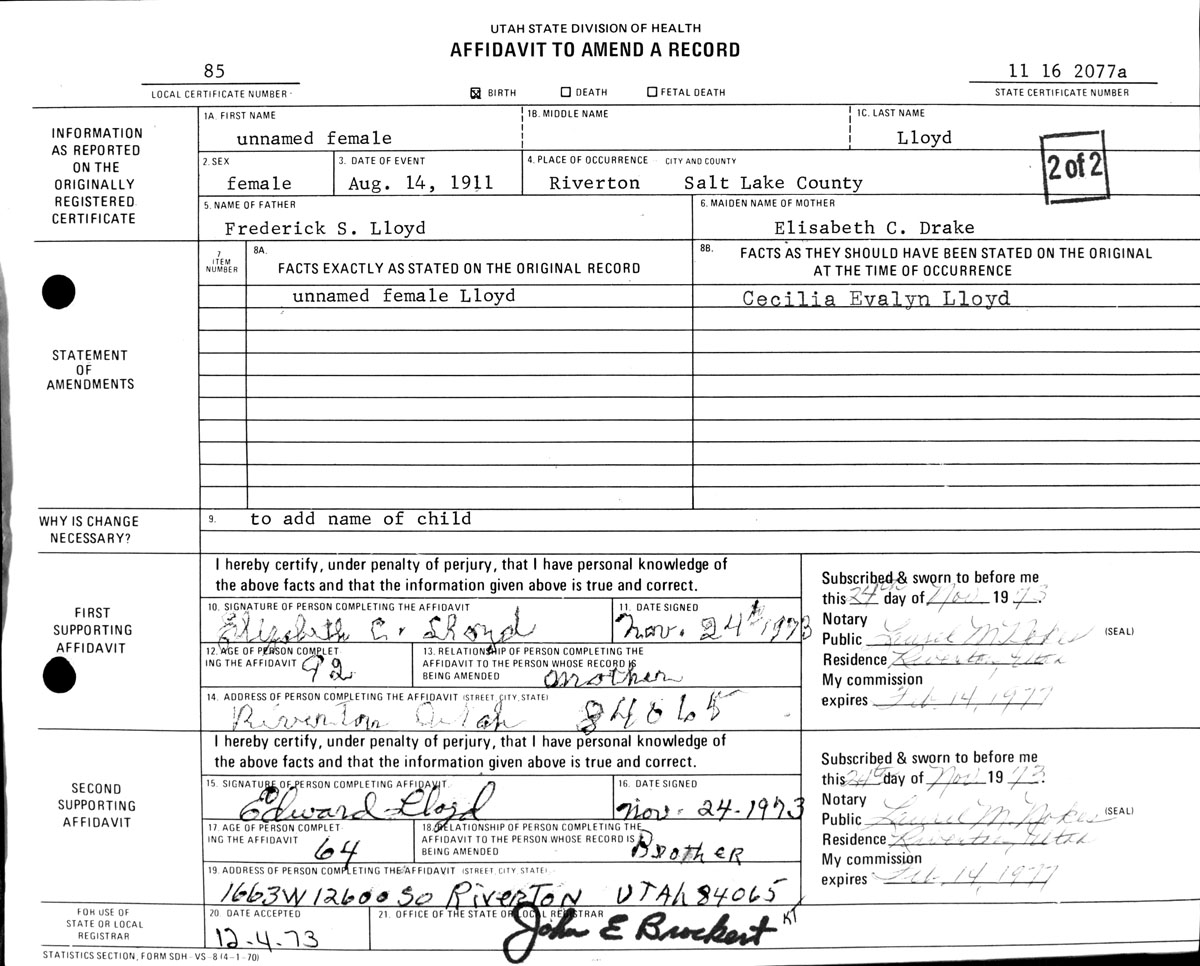 UTAH STATE DIVISION OF HEALTH
AFFIDAVIT TO AMEND A RECORD
85
LOCAL CERTIFICATE NUMBER
☒ BIRTH ☐ DEATH ☐ FETAL DEATH
11 16 2077a
STATE CERTIFICATE NUMBER
INFORMATION
AS REPORTED
ON THE
ORIGINALLY
REGISTERED
CERTIFICATE
1A. FIRST NAME 1B. MIDDLE NAME 1C. LAST NAME
unnamed female Lloyd
2. SEX 3. DATE OF EVENT 4. PLACE OF OCCURRENCE - CITY AND COUNTY
female Aug. 14, 1911 Riverton Salt Lake County
2 of 2
5. NAME OF FATHER 6. MAIDEN NAME OF MOTHER
Frederick S. Lloyd Elisabeth C. Drake
STATEMENT
OF
AMENDMENTS
7
ITEM
NUMBER
8A.
FACTS EXACTLY AS STATED ON THE ORIGINAL RECORD
8B. FACTS AS THEY SHOULD HAVE BEEN STATED ON THE ORIGINAL
AT THE TIME OF OCCURRENCE
unnamed female Lloyd Cecilia Evalyn Lloyd
WHY IS CHANGE
NECESSARY?
9. to add name of child
FIRST
SUPPORTING
AFFIDAVIT
I hereby certify, under penalty of perjury, that I have personal knowledge of
the above facts and that the information given above is true and correct.
10. SIGNATURE OF PERSON COMPLETING THE AFFIDAVIT 11. DATE SIGNED
Elizabeth C. Lloyd Nov. 24th 1973
12. AGE OF PERSON COMPLET-
ING THE AFFIDAVIT 92
13. RELATIONSHIP OF PERSON COMPLETING THE
AFFIDAVIT TO THE PERSON WHOSE RECORD IS
BEING AMENDED mother
14. ADDRESS OF PERSON COMPLETING THE AFFIDAVIT (STREET, CITY, STATE)
Riverton Utah 84065
Subscribed & sworn to before me
this 24th day of Nov 1973.
Notary
Public Laurel M. Nokes (SEAL)
Residence Riverton, Utah
My commission
expires Feb. 14, 1977
SECOND
SUPPORTING
AFFIDAVIT
I hereby certify, under penalty of perjury, that I have personal knowledge of
the above facts and that the information given above is true and correct.
15. SIGNATURE OF PERSON COMPLETING AFFIDAVIT 16. DATE SIGNED
Edward Lloyd Nov. 24-1973
17. AGE OF PERSON COMPLET-
ING THE AFFIDAVIT 64
18. RELATIONSHIP OF PERSON COMPLETING THE
AFFIDAVIT TO THE PERSON WHOSE RECORD IS
BEING AMENDED BROTHER
19. ADDRESS OF PERSON COMPLETING THE AFFIDAVIT (STREET, CITY, STATE)
1663 W 12600 SO RIVERTON UTAH 84065
Subscribed & sworn to before me
this 24th day of Nov 1973.
Notary
Public Laurel M. Nokes (SEAL)
Residence Riverton, Utah
My commission
expires Feb. 14, 1977
FOR USE OF
STATE OR LOCAL
REGISTRAR
20. DATE ACCEPTED 21. OFFICE OF THE STATE OR LOCAL REGISTRAR
12-4-73 John E Brockert KT
STATISTICS SECTION, FORM SDH-VS-8 (4-1-70)